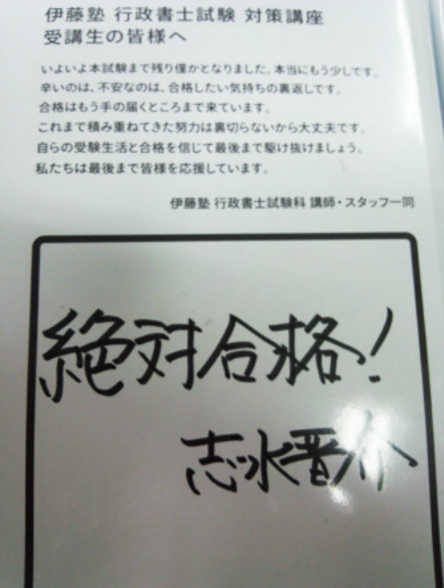 伊藤塾 行政書士試験 対策講座
受講生の皆様へ
いよいよ本試験まで残り僅かとなりました。本当にもう少しです。
辛いのは、不安なのは、合格したい気持ちの裏返しです。
合格はもう手の届くところまで来ています。
これまで積み重ねてきた努力は裏切らないから大丈夫です。
自らの受験生活と合格を信じて最後まで駆け抜けましょう。
私たちは最後まで皆様を応援しています。
伊藤塾 行政書士試験科 講師・スタッフ一同
絶対合格!
志水晋介